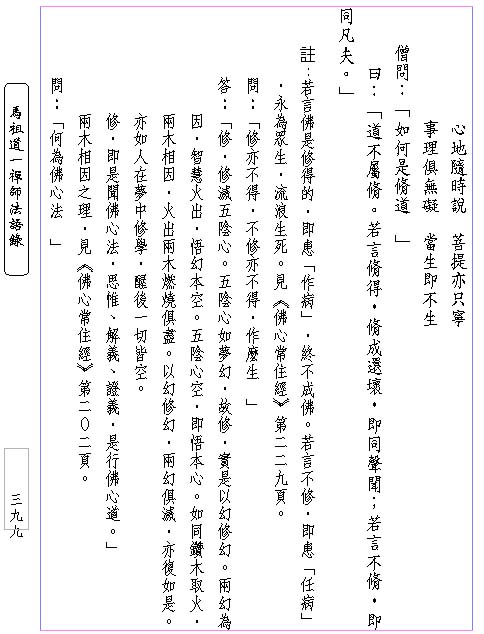 心地隨時說　菩提亦只寧
事理俱無礙　當生即不生
僧問：「如何是脩道　」
曰：「道不屬脩。若言脩得，脩成還壞，即同聲聞；若言不脩，即
同凡夫。」
註：若言佛是修得的，即患「作病」，終不成佛。若言不修，即患「任病」
，永為眾生，流浪生死。見《佛心常住經》第二二九頁。
問：「修亦不得，不修亦不得，作麼生　」
答：「修，修滅五陰心。五陰心如夢幻，故修，實是以幻修幻。兩幻為
因，智慧火出，悟幻本空。五陰心空，即悟本心。如同鑽木取火，
兩木相因，火出兩木燃燒俱盡。以幻修幻，兩幻俱滅，亦復如是。
亦如人在夢中修學，醒後一切皆空。
修，即是聞佛心法，思惟、解義、證義，是行佛心道。」
兩木相因之理，見《佛心常住經》第二０二頁。
問：「何為佛心法　」
馬祖道一禪師法語錄
三九九